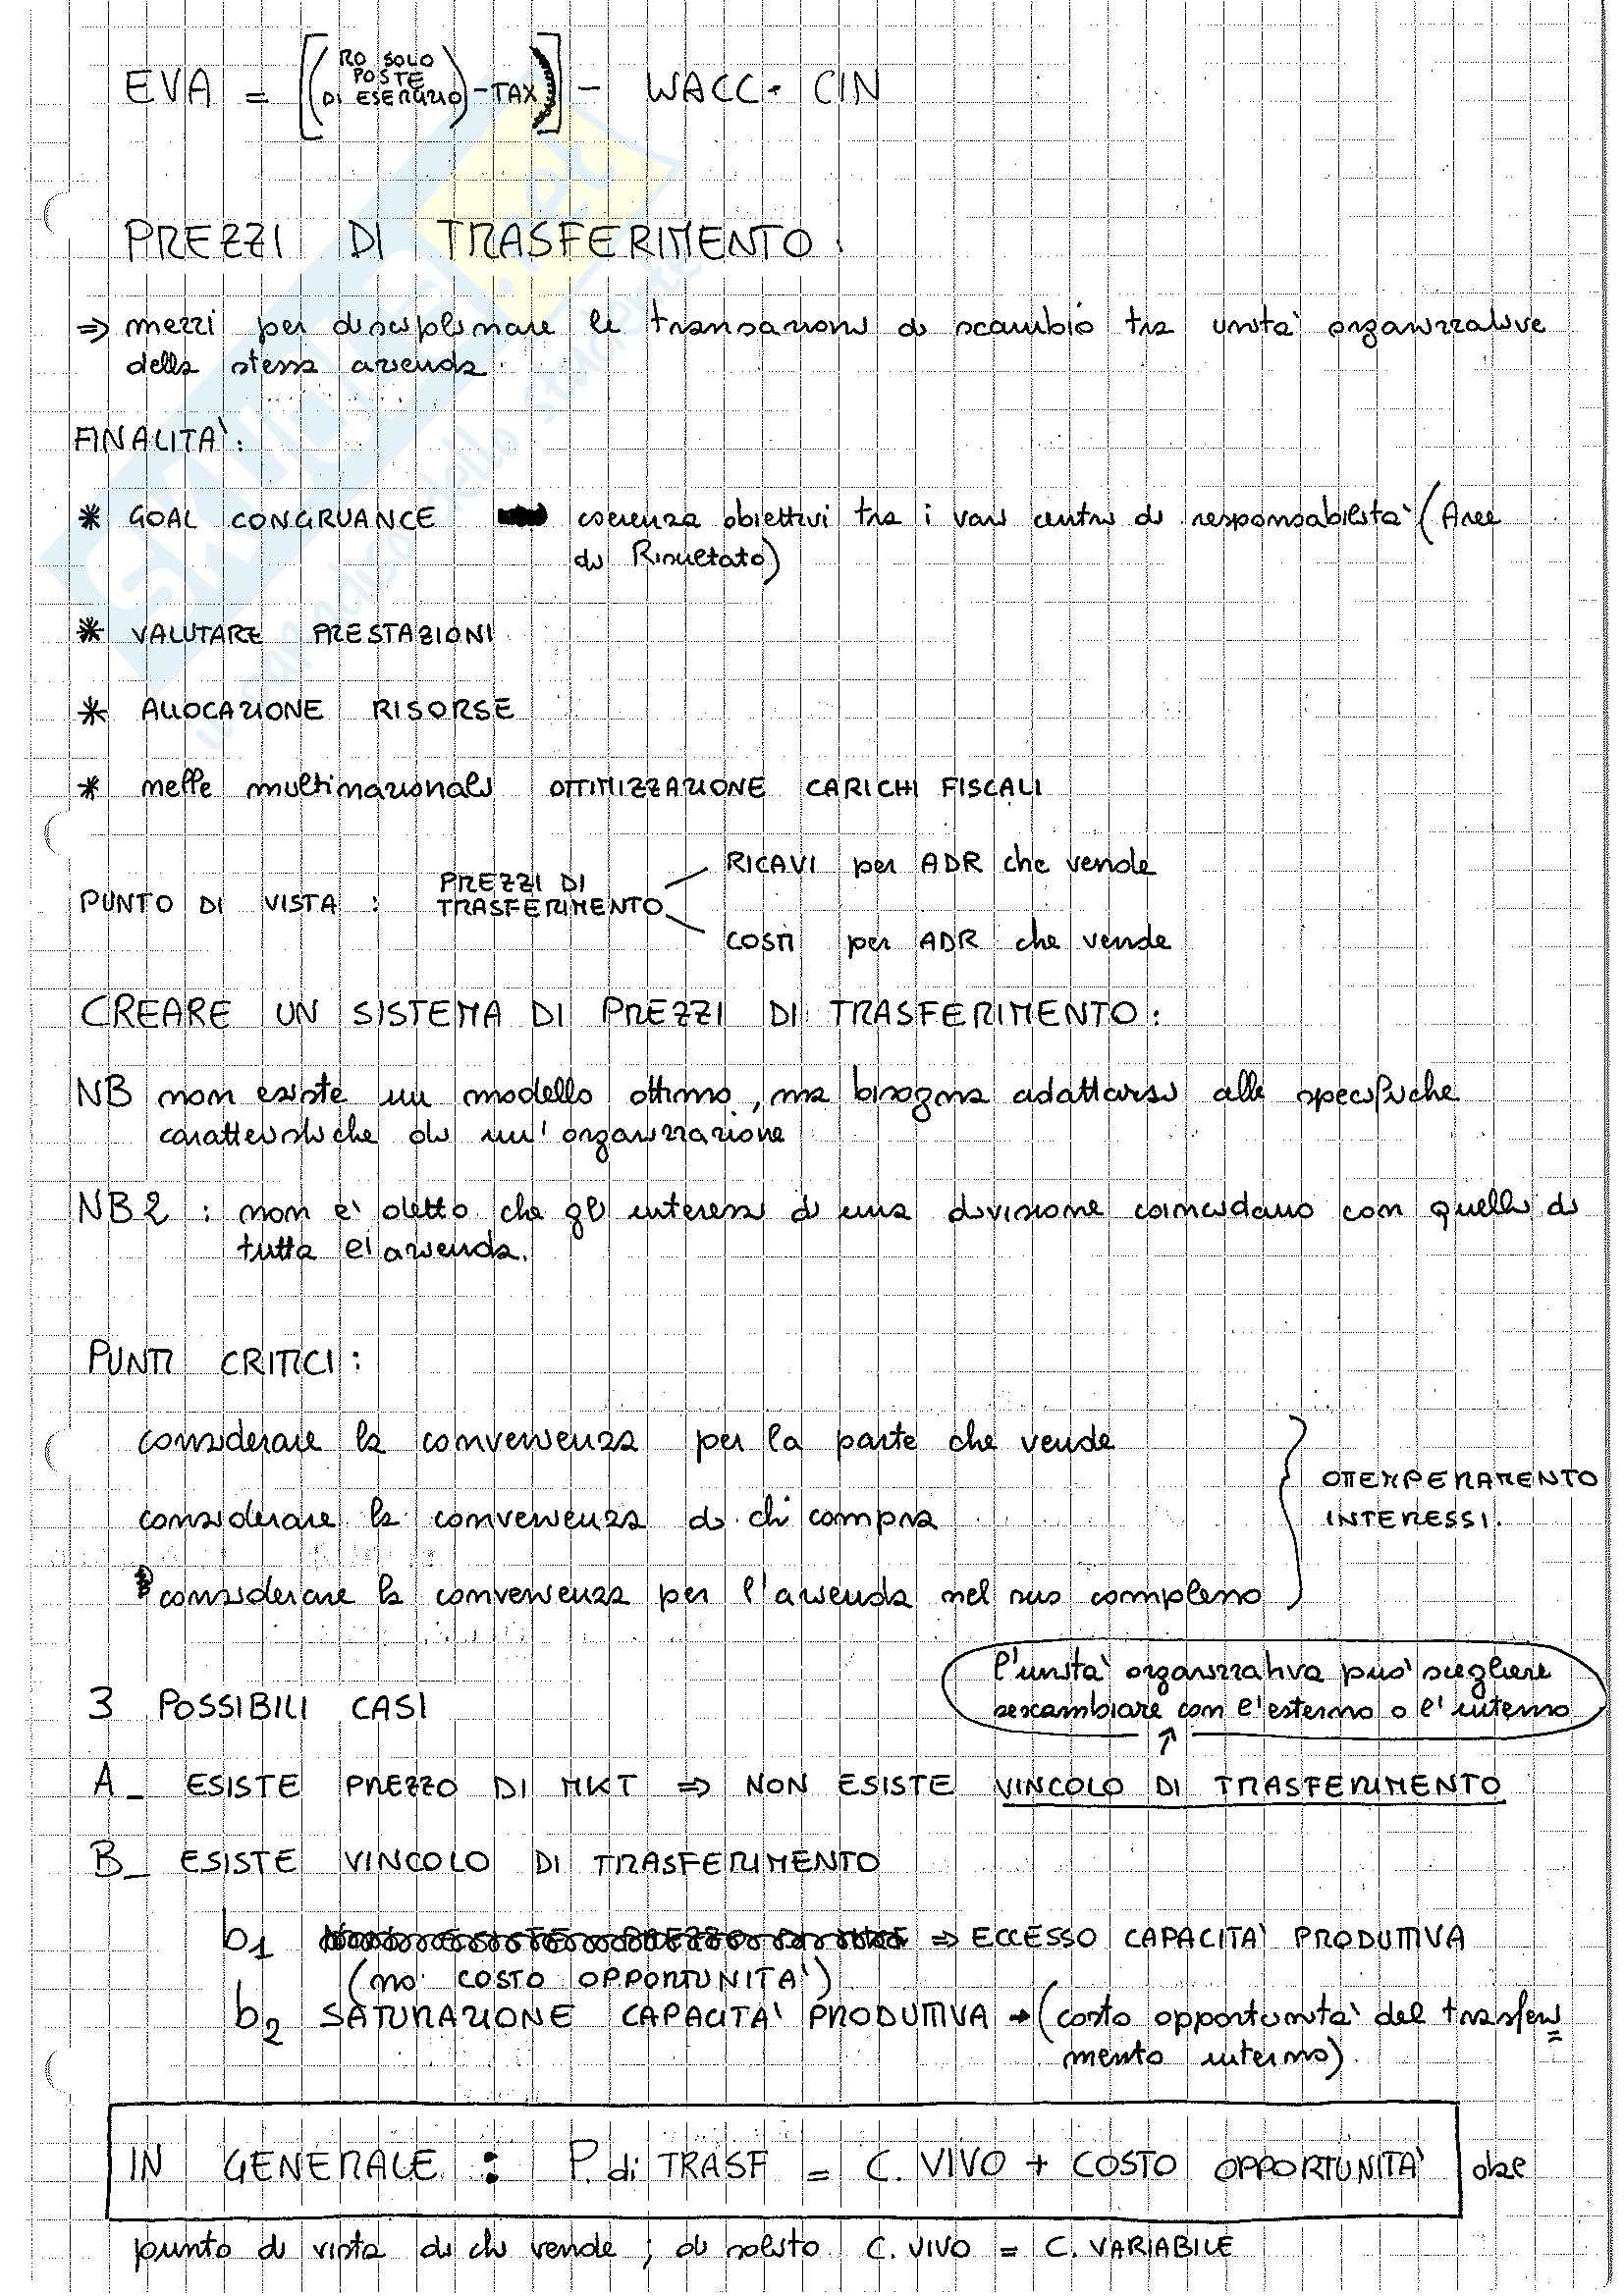 EVA = [(RO SOLO POSTE DI ESERCIZIO) - TAX] - WACC · CIN
PREZZI DI TRASFERIMENTO:
⇒ mezzi per disciplinare le transazioni di scambio tra unità organizzative
della stessa azienda.
FINALITA':
* GOAL CONGRUANCE coerenza obiettivi tra i vari centri di responsabilità (Aree
di Risultato)
* VALUTARE PRESTAZIONI
* ALLOCAZIONE RISORSE
* nelle multinazionali OTTIMIZZAZIONE CARICHI FISCALI
RICAVI per ADR che vende
PUNTO DI VISTA : PREZZI DI TRASFERIMENTO
COSTI per ADR che vende
CREARE UN SISTEMA DI PREZZI DI TRASFERIMENTO:
NB non esiste un modello ottimo, ma bisogna adattarsi alle specifiche
caratteristiche di un'organizzazione
NB2 : non è detto che gli interessi di una divisione coincidano con quelli di
tutta l'azienda.
PUNTI CRITICI:
considerare la convenienza per la parte che vende
OTTEMPERAMENTO
considerare la convenienza di chi compra
INTERESSI.
considerare la convenienza per l'azienda nel suo complesso
l'unità organizzativa può scegliere
se scambiare con l'esterno o l'interno
3 POSSIBILI CASI
A_ ESISTE PREZZO DI MKT ⇒ NON ESISTE VINCOLO DI TRASFERIMENTO
B_ ESISTE VINCOLO DI TRASFERIMENTO
b1 ⇒ ECCESSO CAPACITA' PRODUTTIVA
(no COSTO OPPORTUNITA')
b2 SATURAZIONE CAPACITA' PRODUTTIVA → (costo opportunità del trasferi
mento interno).
IN GENERALE : P. di TRASF = C. VIVO + COSTO OPPORTUNITA' dal
punto di vista di chi vende; di solito C. VIVO = C. VARIABILE